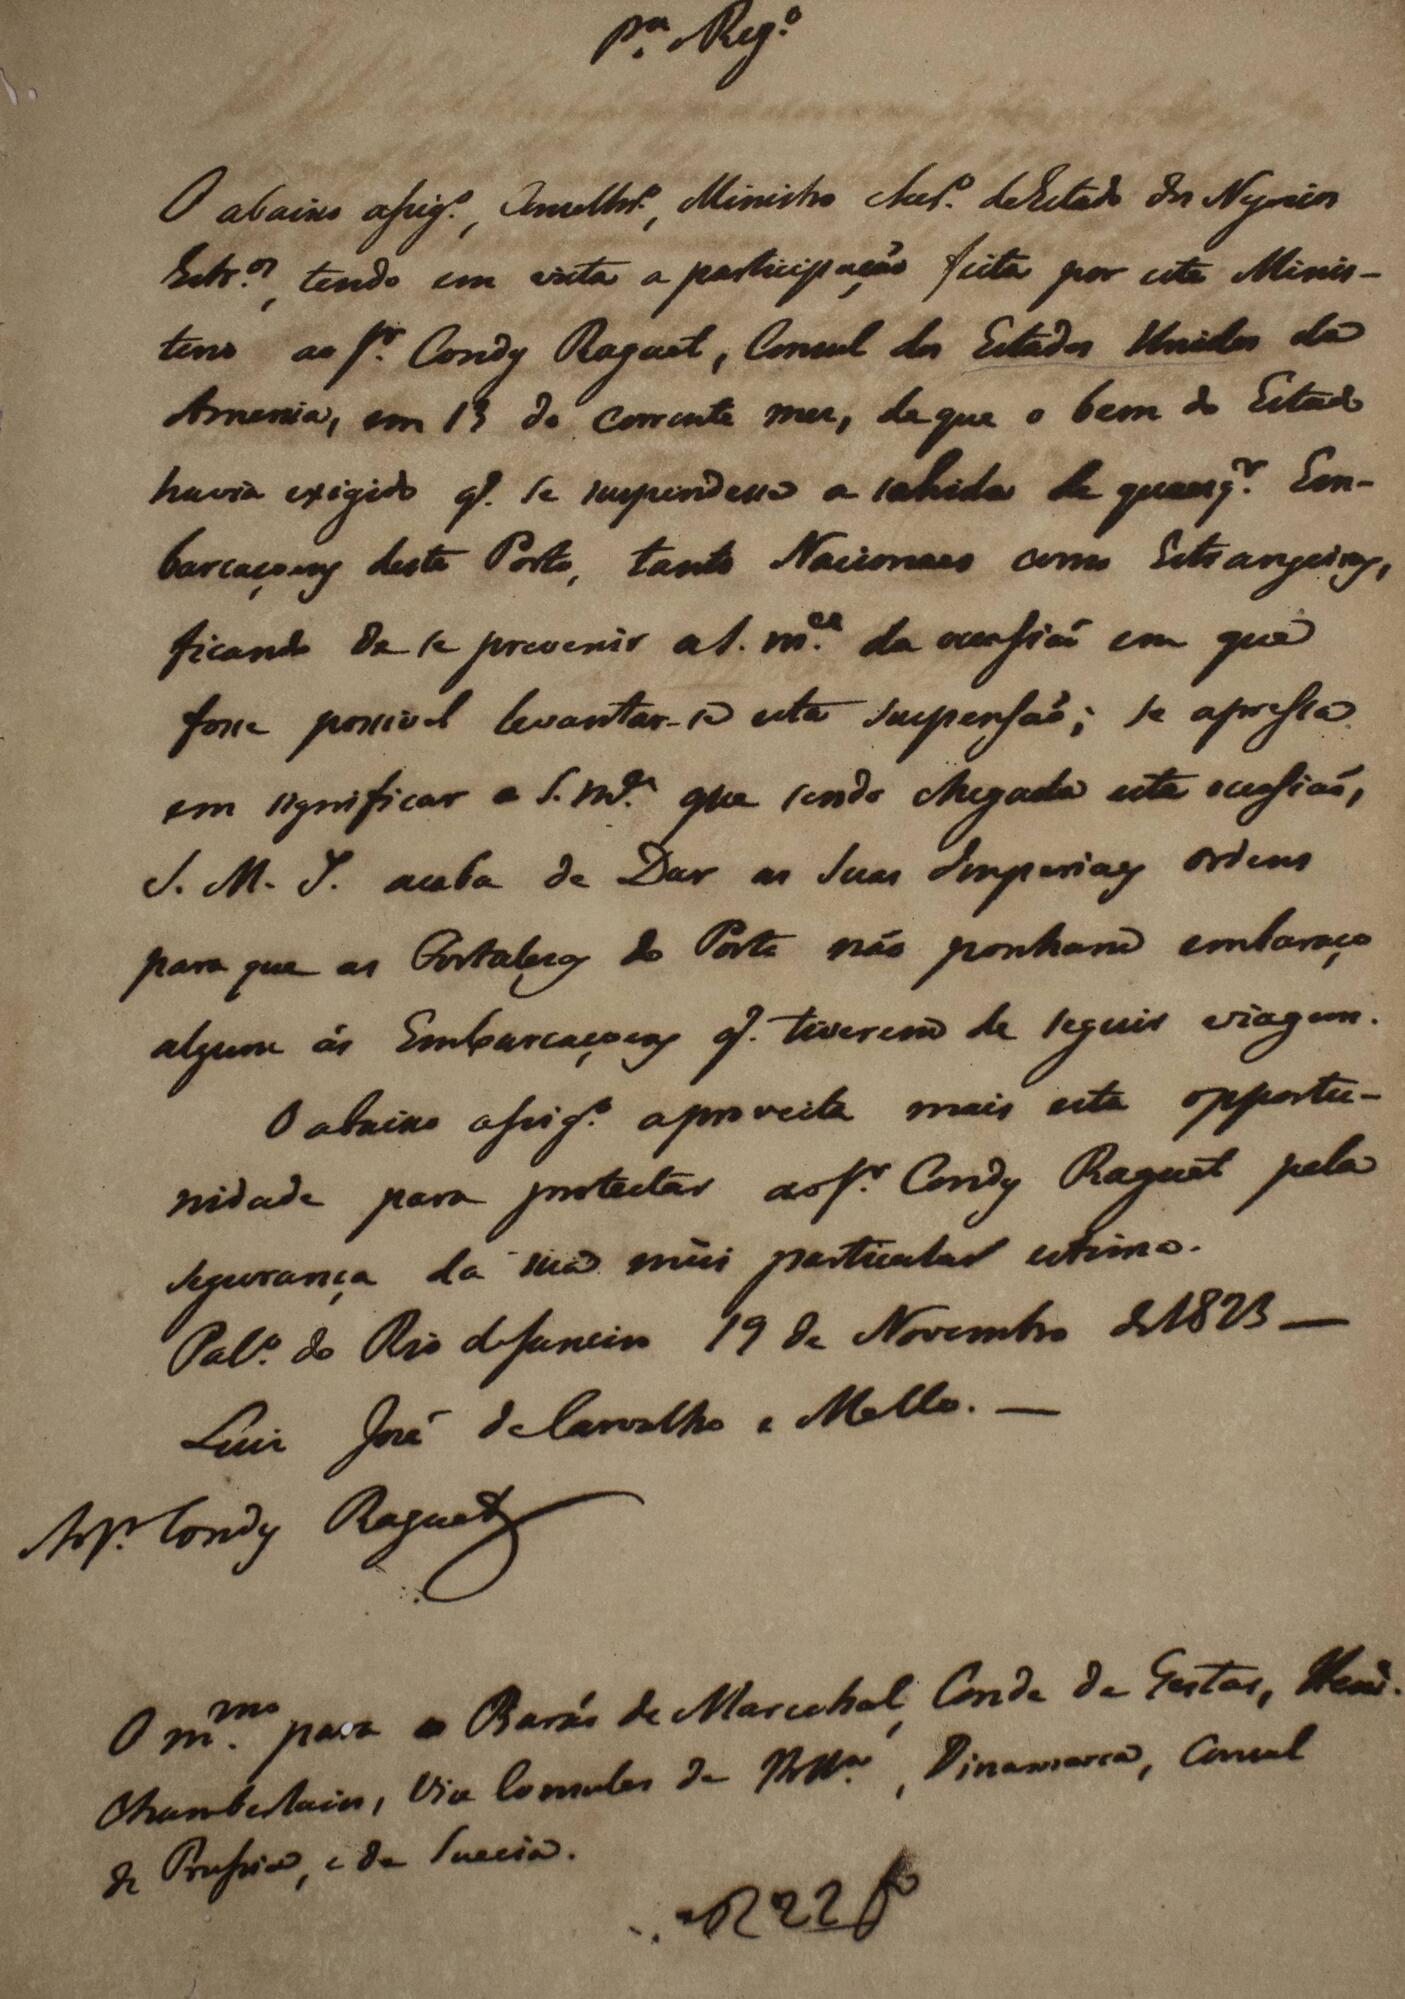 P.ª Reg.º
O abaixo assig.º, Conselhr.º, Ministro Secr.º de Estado dos Negocios
Estr.os, tendo em vista a participação feita por este Minis-
terio ao Sr. Condy Raguet, Consul dos Estados Unidos da
America, em 13 do corrente mez, de que o bem do Estado
havia exigido q. se suspendesse a sahida de quaesq.r Em-
barcaçoens deste Porto, tanto Nacionaes como Estrangeiras,
ficando de se prevenir a S. m.ce da occasião em que
fosse possivel levantar-se esta suspensão; se apressa
em significar a S. m.ce que sendo chegada esta occasião,
S. M. I. acaba de Dar as Suas Imperiaes ordens
para que as Fortalezas do Porto não ponham embaraço
algum ás Embarcaçoens q. tiverem de seguir viagem.
O abaixo assig.º aproveita mais esta opportu-
nidade para protestar ao Sr. Condy Raguet pela
segurança da sua mui particular estima.
Pal.º do Rio de Janeiro 19 de Novembro de 1823 —
Luiz José de Carvalho e Mello. —
Ao Sr. Condy Raguet
O m.mo para o Barão de Mareschal, Conde de Gestas, Henr.
Chamberlain, Vice Consules de , Dinamarca, Consul
de Prussia, e da Suecia.
R 22